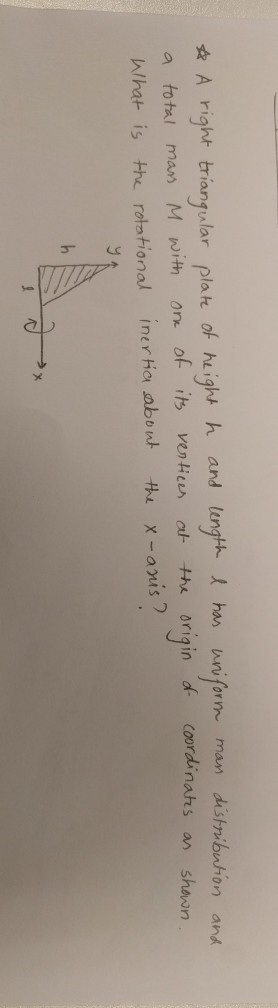 ☆ A right triangular plate of height h and length l has uniform mass distribution and
a total mass M with one of its vertices at the origin of coordinates as shown.
What is the rotational inertia about the x-axis?
y
h
l
x